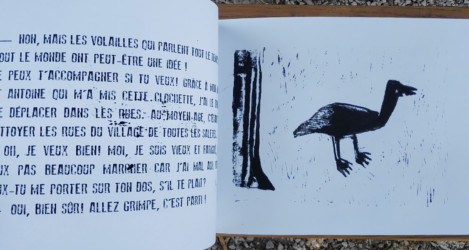 — NON, MAIS LES VOLAILLES QUI PARLENT TOUT LE
OUT LE MONDE ONT PEUT-ÊTRE UNE IDÉE !
PEUX T'ACCOMPAGNER SI TU VEUX! GRÂCE A
T ANTOINE QUI M'A MIS CETTE CLOCHETTE, J'AI LE
E DÉPLACER DANS LES RUES. AU MOYEN-AGE, C'ÉTAIT
TTOYER LES RUES DU VILLAGE DE TOUTES LES SALETÉS
OH, JE VEUX BIEN! MOI, JE SUIS VIEUX ET FATIGUÉ
UX PAS BEAUCOUP MARCHER CAR J'AI MAL AUX
UX-TU ME PORTER SUR TON DOS, S'IL TE PLAIT?
— OUI, BIEN SÛR! ALLEZ GRIMPE, C'EST PARTI !